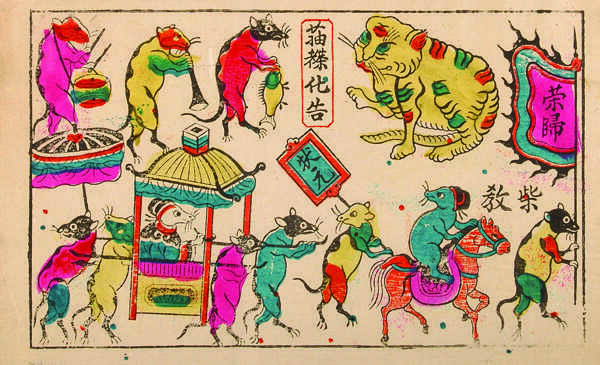 化告
荣歸
状元
柴教